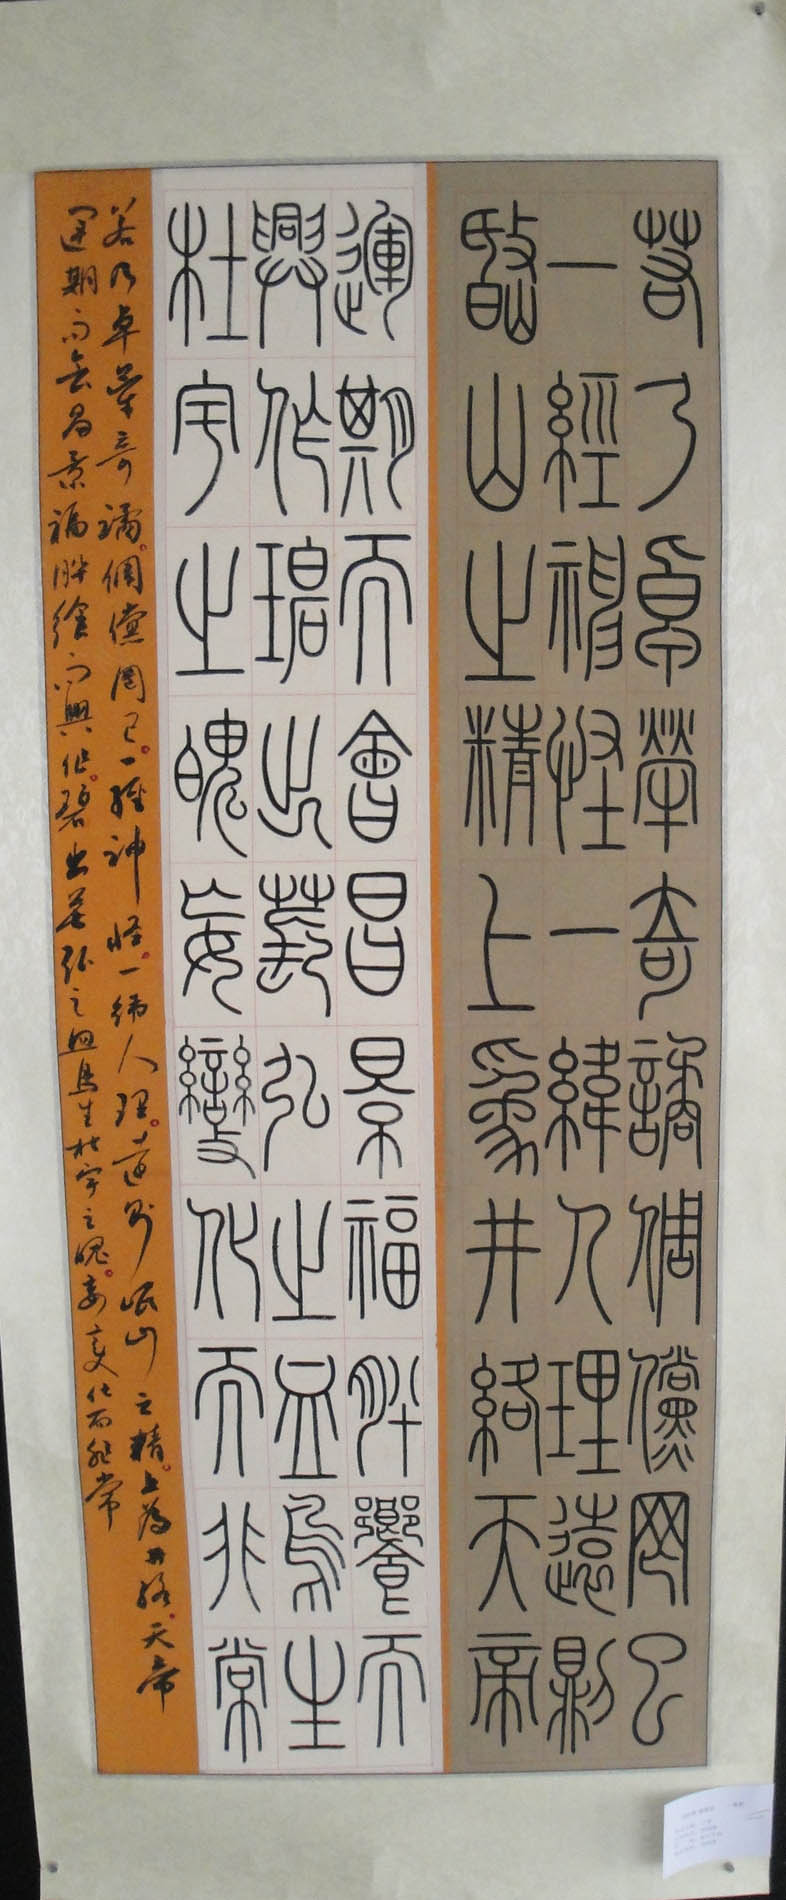 若乃卓犖奇譎倜儻罔已
一經神怪一緯人理遠則
岷山之精上為井絡天帝
運期而會昌景福肸饗而
興作碧出萇弘之血鳥生
杜宇之魄妄變化而非常
若乃卓犖奇譎倜儻罔已一經神怪一緯人理遠則岷山之精上為井絡天帝
運期而會昌景福肸而興作碧出萇弘之血鳥生杜宇之魄妄变化而非常